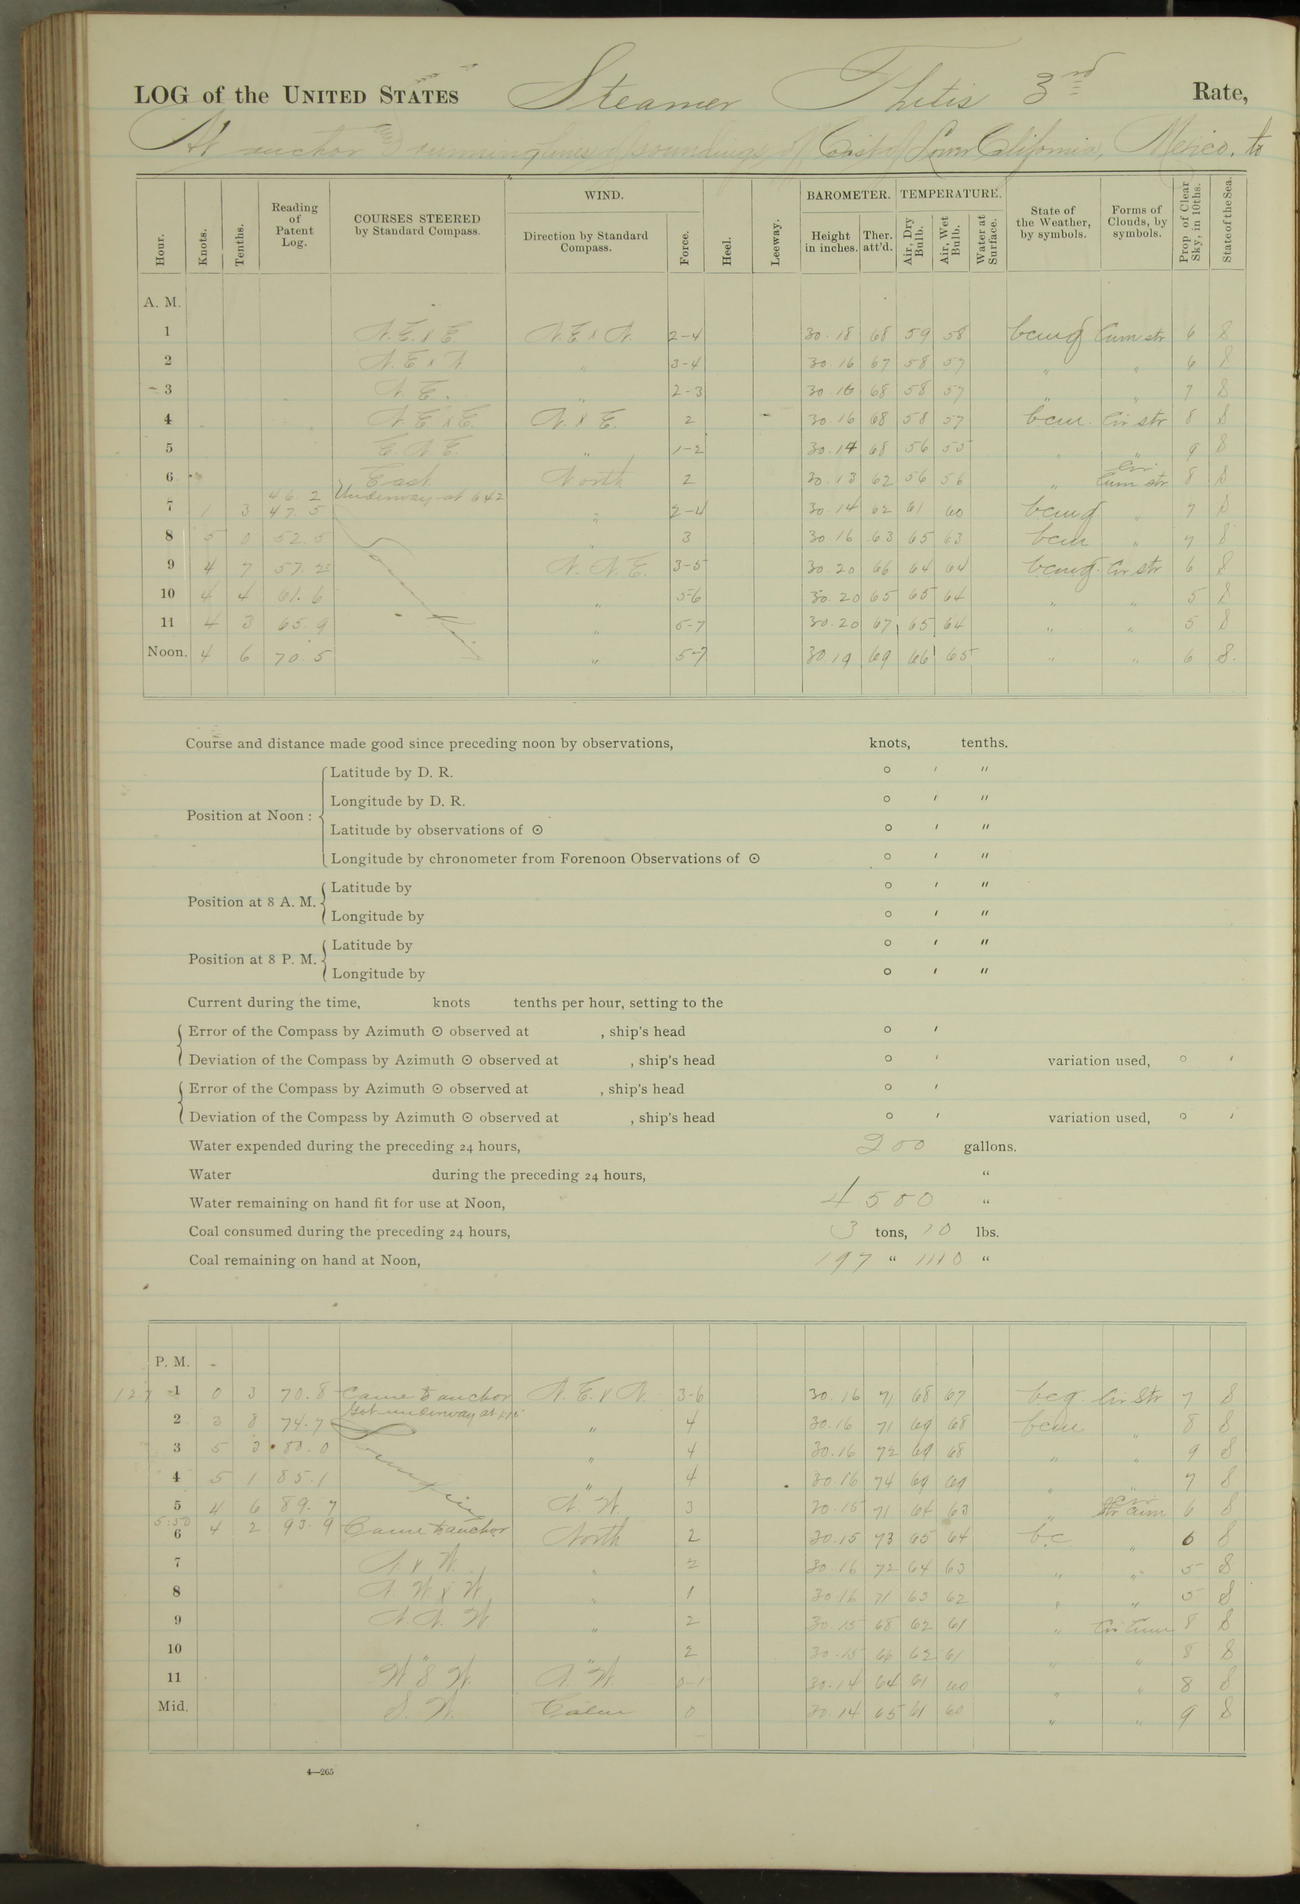 LOG of the UNITED STATES Steamer Thetis 3rd Rate,
At anchor & running lines of soundings off Coast of Lower California, Mexico, to
Hour. Knots. Tenths. Reading of Patent Log. COURSES STEERED by Standard Compass. WIND. Direction by Standard Compass. Force. Heel. Leeway. BAROMETER. Height in inches. Ther. att'd. TEMPERATURE. Air, Dry Bulb. Air, Wet Bulb. Water at Surface. State of the Weather, by symbols. Forms of Clouds, by symbols. Prop. of Clear Sky, in 10ths. State of the Sea.
A. M.
1 N.E. x E. N.E. x N. 2-4 30.18 68 59 58 bcmg Cum str 6 S
2 N.E. x N. " 3-4 30.16 67 58 57 " " 6 S
3 N.E. " 2-3 30.16 68 58 57 " " 7 S
4 N.E. x E. N. x E. 2 30.16 68 58 57 bcm. Cir str 8 S
5 E.N.E. " 1-2 30.14 68 56 55 " " 9 S
6 East North 2 30.13 62 56 56 " Cir. Cum str 8 S
46.2 Underway at 6 42
7 1 3 47.5 " 2-4 30.14 62 61 60 bcmg " 7 S
8 5 0 52.5 " 3 30.16 63 65 63 bcm " 7 S
9 4 7 57.2 N.N.E. 3-5 30.20 66 64 64 bcmg. Cir str 6 S
10 4 4 61.6 " 5-6 30.20 65 65 64 " " 5 S
11 4 3 65.9 " 5-7 30.20 67 65 64 " " 5 S
Noon. 4 6 70.5 " 5-7 30.19 69 66 65 " " 6 S.
Course and distance made good since preceding noon by observations, knots, tenths.
Position at Noon : Latitude by D. R. ° ′ ″
Longitude by D. R. ° ′ ″
Latitude by observations of ⊙ ° ′ ″
Longitude by chronometer from Forenoon Observations of ⊙ ° ′ ″
Position at 8 A. M. Latitude by ° ′ ″
Longitude by ° ′ ″
Position at 8 P. M. Latitude by ° ′ ″
Longitude by ° ′ ″
Current during the time, knots tenths per hour, setting to the
Error of the Compass by Azimuth ⊙ observed at , ship's head ° ′
Deviation of the Compass by Azimuth ⊙ observed at , ship's head ° ′ variation used, ° ′
Error of the Compass by Azimuth ⊙ observed at , ship's head ° ′
Deviation of the Compass by Azimuth ⊙ observed at , ship's head ° ′ variation used, ° ′
Water expended during the preceding 24 hours, 200 gallons.
Water during the preceding 24 hours, "
Water remaining on hand fit for use at Noon, 4500 "
Coal consumed during the preceding 24 hours, 3 tons, 10 lbs.
Coal remaining on hand at Noon, 197 " 1110 "
P. M.
1 0 3 70.8 Came to anchor N.E. x N. 3-6 30.16 71 68 67 bcg. Cir Str 7 S
Got underway at
2 3 8 74.7 " 4 30.16 71 69 68 bcm " 8 S
3 5 3 80.0 " 4 30.16 72 69 68 " " 9 S
4 5 1 85.1 " 4 30.16 74 69 69 " " 7 S
5 4 6 89.7 N.W. 3 30.15 71 64 63 " Cir str cum 6 S
5:50
6 4 2 93.9 Came to anchor North 2 30.15 73 65 64 b.c. " 6 S
7 N x W. " 2 30.16 72 64 63 " " 5 S
8 N.W x W. " 1 30.16 71 63 62 " " 5 S
9 N.N.W " 2 30.15 68 62 61 " Cir Cum 8 S
10 " " 2 30.15 66 62 61 " " 8 S
11 W.S.W. N.W. 0-1 30.14 64 61 60 " " 8 S
Mid. S.W. Calm 0 30.14 65 61 60 " " 9 S
4—265